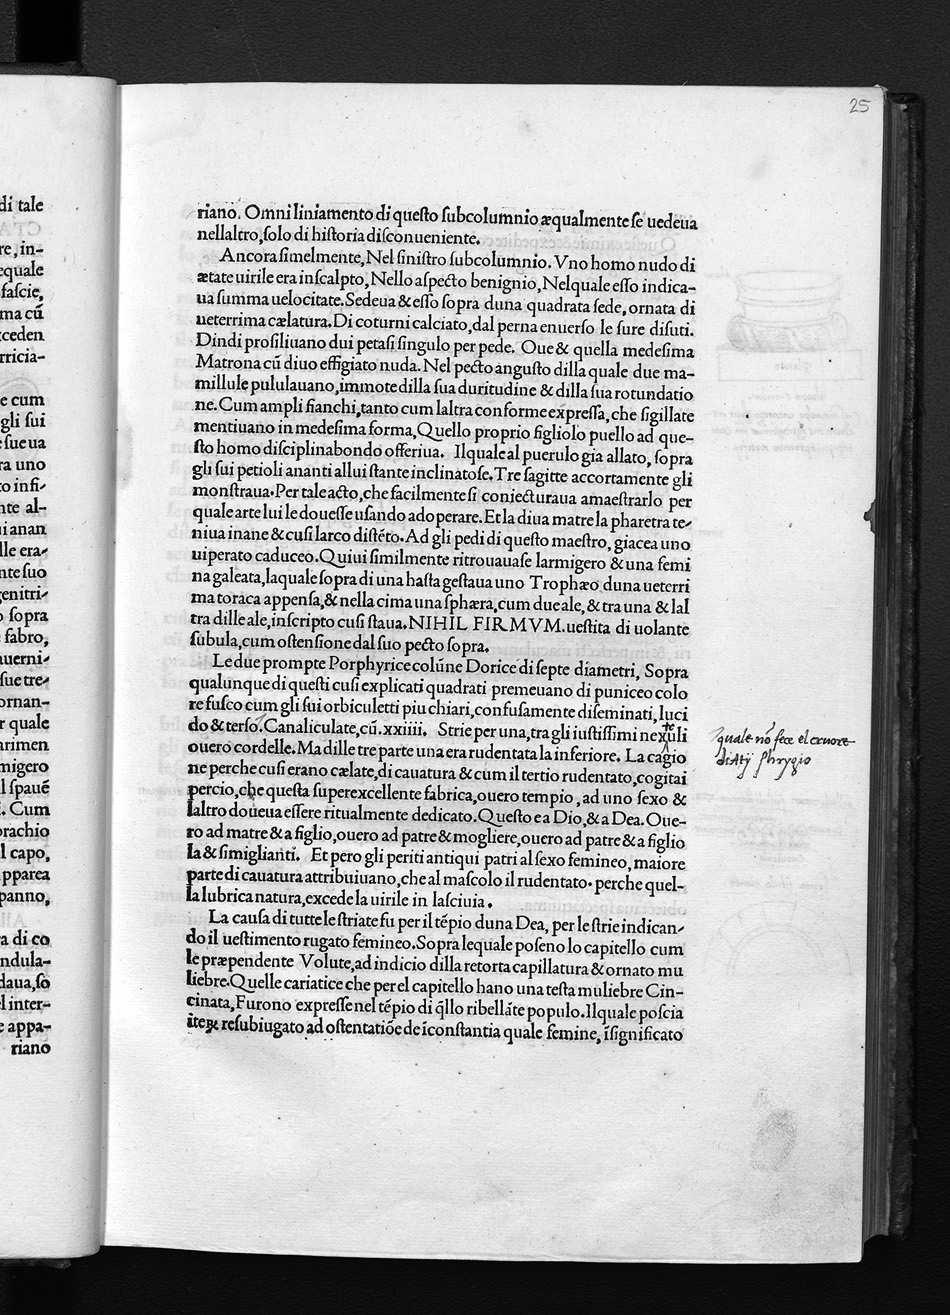 25
di tale
re, in-
equale
fascie,
ma cū
ceden
rricia-
e cum
gli sui
e sue ua
ra uno
to infi-
nte al-
ui anan
lle era-
nte suo
genitri-
o sopra
fabro,
uerni-
sue tre-
ornan-
r quale
arimen
migero
l spauē
. Cum
brachio
l capo,
pparea
panno,
a di co
ndula-
daua, so
l inter-
e appa-
riano
riano. Omni liniamento di questo subcolumnio æqualmente se uedeua
nellaltro, solo di historia disconueniente.
Ancora simelmente, Nel sinistro subcolumnio. Vno homo nudo di
ætate uirile era inscalpto, Nello aspecto benignio, Nelquale esso indica-
ua summa uelocitate. Sedeua & esso sopra duna quadrata sede, ornata di
ueterrima cælatura. Di coturni calciato, dal perna enuerso le sure disuti.
Dindi prosiliuano dui petasi singulo per pede. Oue & quella medesima
Matrona cū diuo effigiato nuda. Nel pecto angusto dilla quale due ma-
millule pululauano, immote dilla sua duritudine & dilla sua rotundatio
ne. Cum ampli fianchi, tanto cum laltra conforme expressa, che sigillate
mentiuano in medesima forma, Quello proprio figliolo puello ad que-
sto homo disciplinabondo offeriua. Ilquale al puerulo gia allato, sopra
gli sui petioli ananti allui stante inclinatose. Tre sagitte accortamente gli
monstraua. Per tale acto, che facilmente si coniecturaua amaestrarlo per
quale arte lui le douesse usando adoperare. Et la diua matre la pharetra te-
niua inane & cusi larco distēto. Ad gli pedi di questo maestro, giacea uno
uiperato caduceo. Quiui similmente ritrouauase larmigero & una femi
na galeata, laquale sopra di una hasta gestaua uno Trophæo duna ueterri
ma toraca appensa, & nella cima una sphæra, cum due ale, & tra una & lal
tra dille ale, inscripto cusi staua. NIHIL FIRMVM. uestita di uolante
subula, cum ostensione dal suo pecto sopra.
Le due prompte Porphyrice colūne Dorice di septe diametri, Sopra
qualunque di questi cusi explicati quadrati premeuano di puniceo colo
re fusco cum gli sui orbiculetti piu chiari, confusamente diseminati, luci
do & terso. Canaliculate, cū. xxiiii. Strie per una, tra gli iustissimi nexuli
ouero cordelle. Ma dille tre parte una era rudentata la inferiore. La cagio
ne perche cusi erano cælate, di cauatura & cum il tertio rudentato, cogitai
percio, che questa superexcellente fabrica, ouero tempio, ad uno sexo &
laltro doueua essere ritualmente dedicato. Questo e a Dio, & a Dea. Oue-
ro ad matre & a figlio, ouero ad patre & mogliere, ouero ad patre & a figlio
la & simiglianti. Et pero gli periti antiqui patri al sexo femineo, maiore
parte di cauatura attribuiuano, che al mascolo il rudentato. perche quel-
la lubrica natura, excede la uirile in lasciuia.
La causa di tutte le striate fu per il tēpio duna Dea, per le strie indican-
do il uestimento rugato femineo. Sopra lequale poseno lo capitello cum
le præpendente Volute, ad indicio dilla retorta capillatura & ornato mu
liebre. Quelle cariatice che per el capitello hano una testa muliebre Cin-
cinata, Furono expresse nel tēpio di q̄llo ribellāte populo. Ilquale poscia
iteꝝ resubiugato ad ostentatiōe de īconstantia quale femine, īsignificato
quale nō fece el cruore
di Atij phrygio